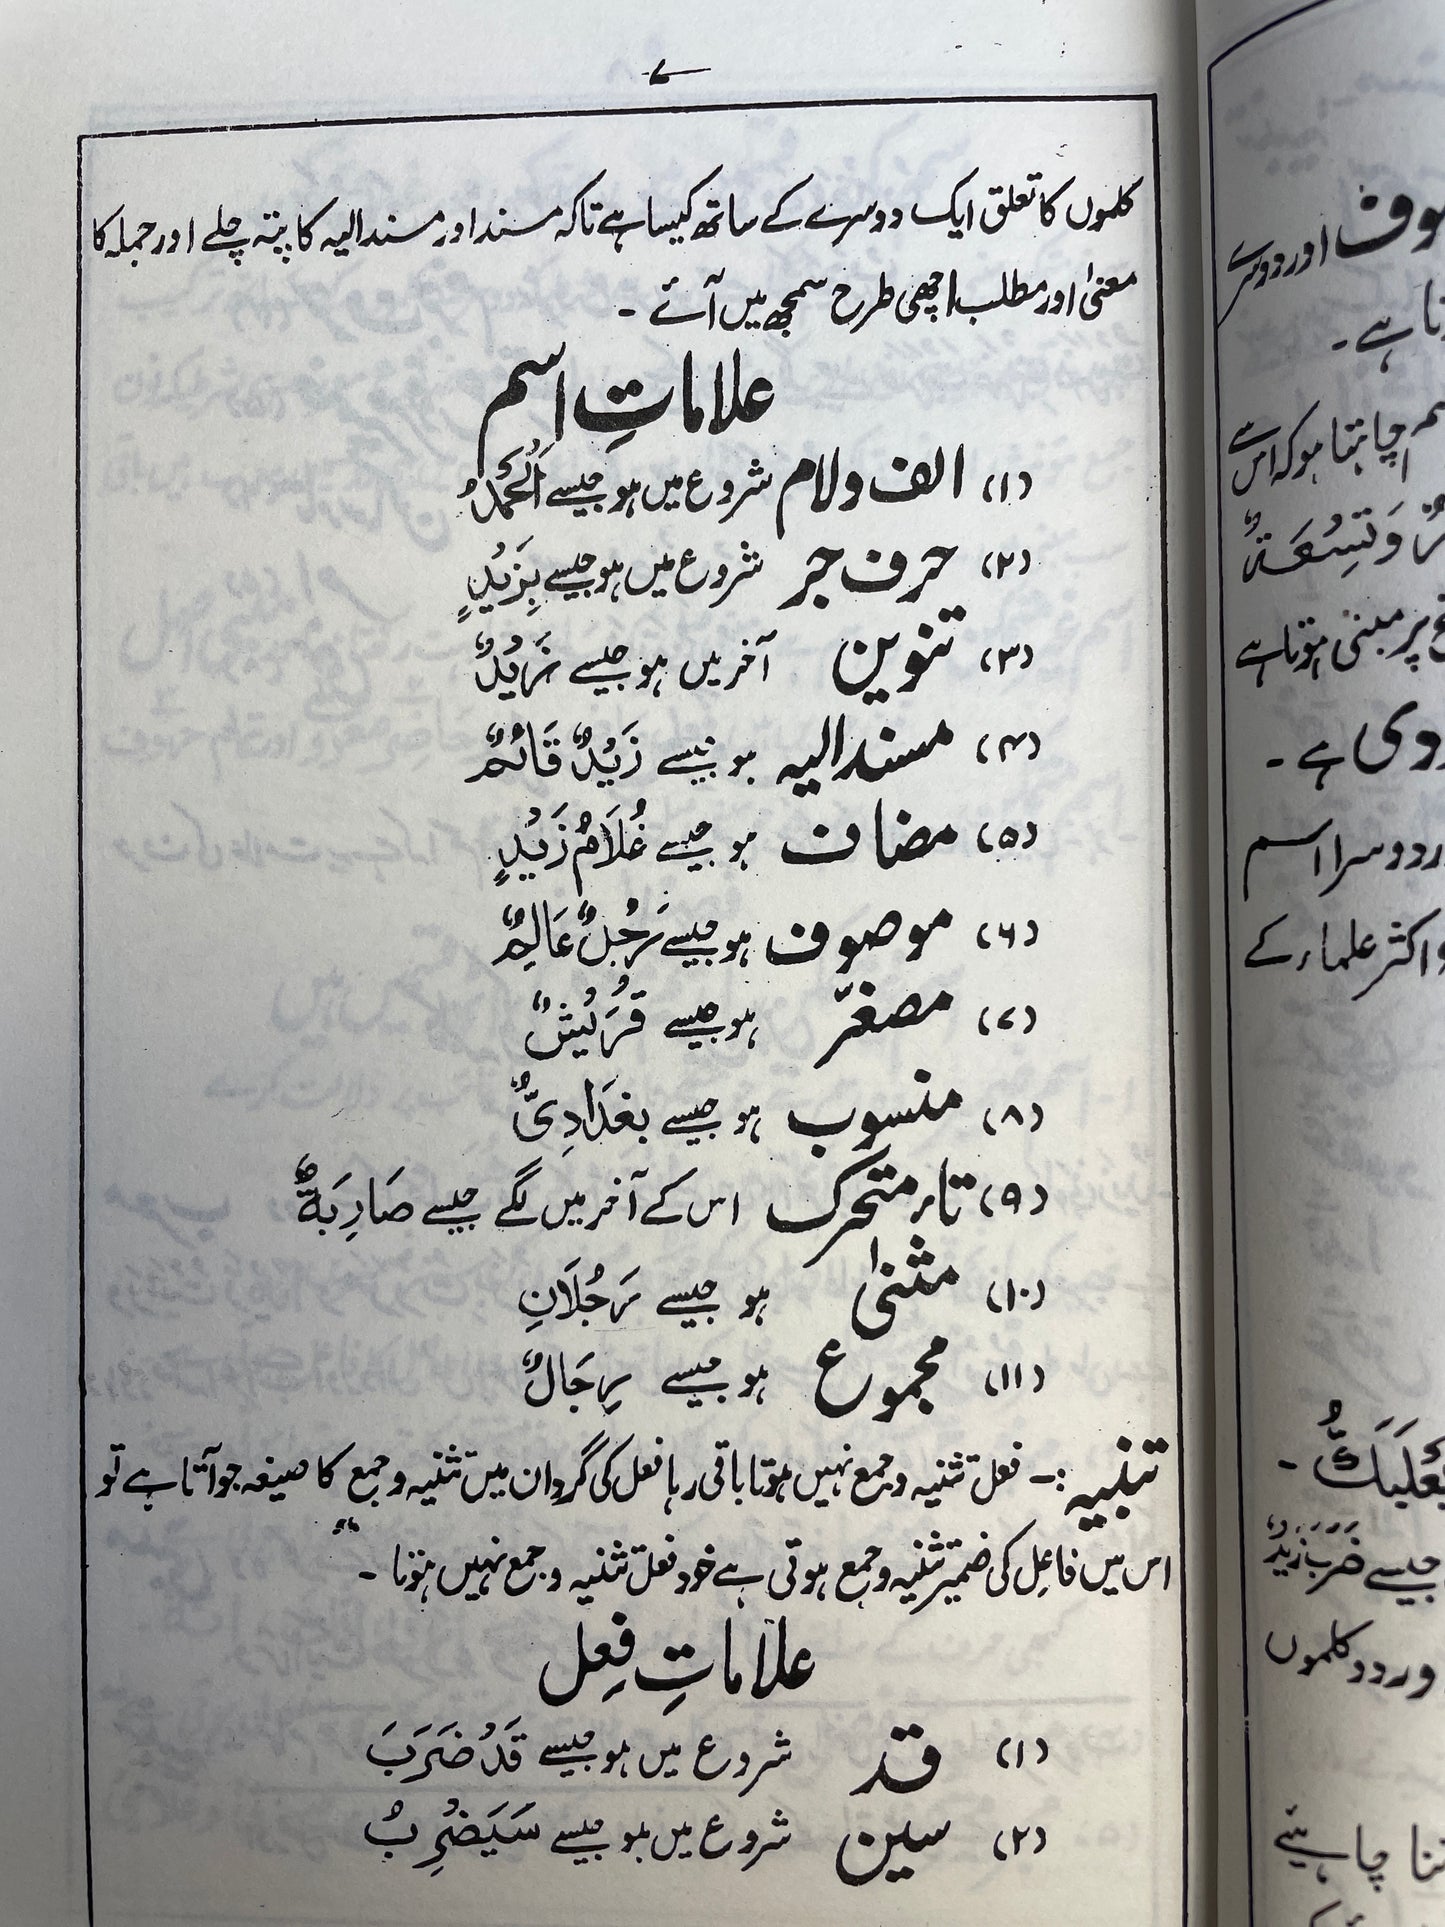 ۷
کلموں کا تعلق ایک دوسرے کے ساتھ کیسا ہے تاکہ مسند اور مسند الیہ کا پتہ چلے اور جملہ کا
معنیٰ اور مطلب اچھی طرح سمجھ میں آئے ۔
علاماتِ اسم
(۱) الف ولام شروع میں ہو جیسے اَلْحَمْدُ
(۲) حرف جر شروع میں ہو جیسے بِزَیْدٍ
(۳) تنوین آخر میں ہو جیسے زَیْدٌ
(۴) مسند الیہ ہو جیسے زَیْدٌ قَائِمٌ
(۵) مضاف ہو جیسے غُلَامُ زَیْدٍ
(۶) موصوف ہو جیسے رَجُلٌ عَالِمٌ
(۷) مصغّر ہو جیسے قُرَیْشٌ
(۸) منسوب ہو جیسے بغْدَادِیٌّ
(۹) تاء متحرک اس کے آخر میں لگے جیسے ضَارِبَةٌ
(۱۰) مثنیٰ ہو جیسے رَجُلَانِ
(۱۱) مجموع ہو جیسے رِجَالٌ
تنبیہ :- فعل تثنیہ وجمع نہیں ہوتا باقی رہا فعل کی گردان میں تثنیہ وجمع کا صیغہ جو آتا ہے تو
اس میں فاعِل کی ضمیر تثنیہ وجمع ہوتی ہے خود فعل تثنیہ وجمع نہیں ہوتا ۔
علاماتِ فِعل
(۱) قد شروع میں ہو جیسے قَدْ ضَرَبَ
(۲) سین شروع میں ہو جیسے سَیَضْرِبُ
اور دوسرے
تا ہے ۔
چاہتا ہو کہ اس سے
وَتِسْعَةٌ
پر مبنی ہوتا ہے
دوسرا اسم
اکثر علماء کے
جیسے ضَرَبَ زَیْدٌ
اور دو کلموں
چاہیئے